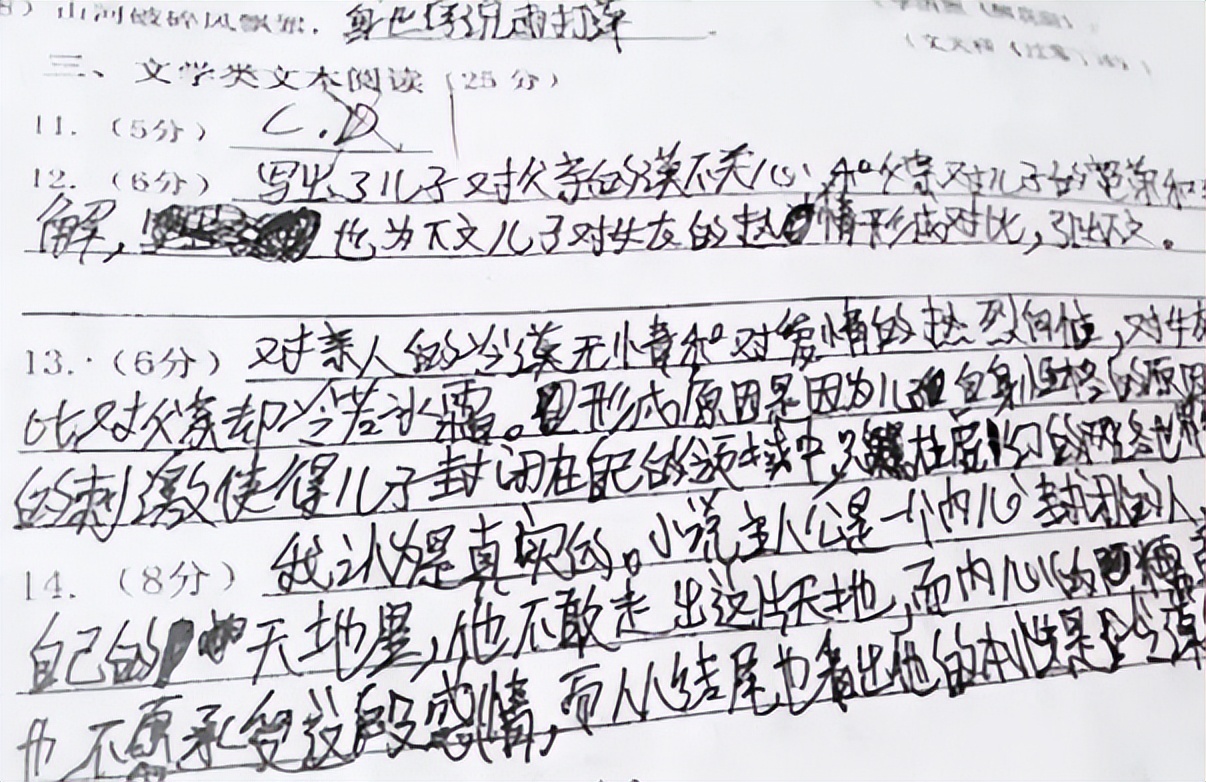 8）山河破碎风飘絮，身世浮沉雨打萍
三、文学类文本阅读（25分）
11.（5分）C.D
12.（6分）写出了儿子对父亲的漠不关心，和父亲对儿子的宽荣和
解，也为下文儿子对女友的热情形成对比，引出下文。
13.（6分）对亲人的冷漠无情和对爱情的热烈向往，对女友
比，对父亲却冷若冰霜。形成原因是因为儿自身性格的原因
的刺激使得儿子封闭在自己的领域中，只在虚幻的网络世界
14.（8分）我认为是真实的。小说主人公是一个内心封闭的人
自己的天地里，他不敢走出这片天地，而内心的
不愿承受这段感情，而从结尾也看出他的本性是冷漠